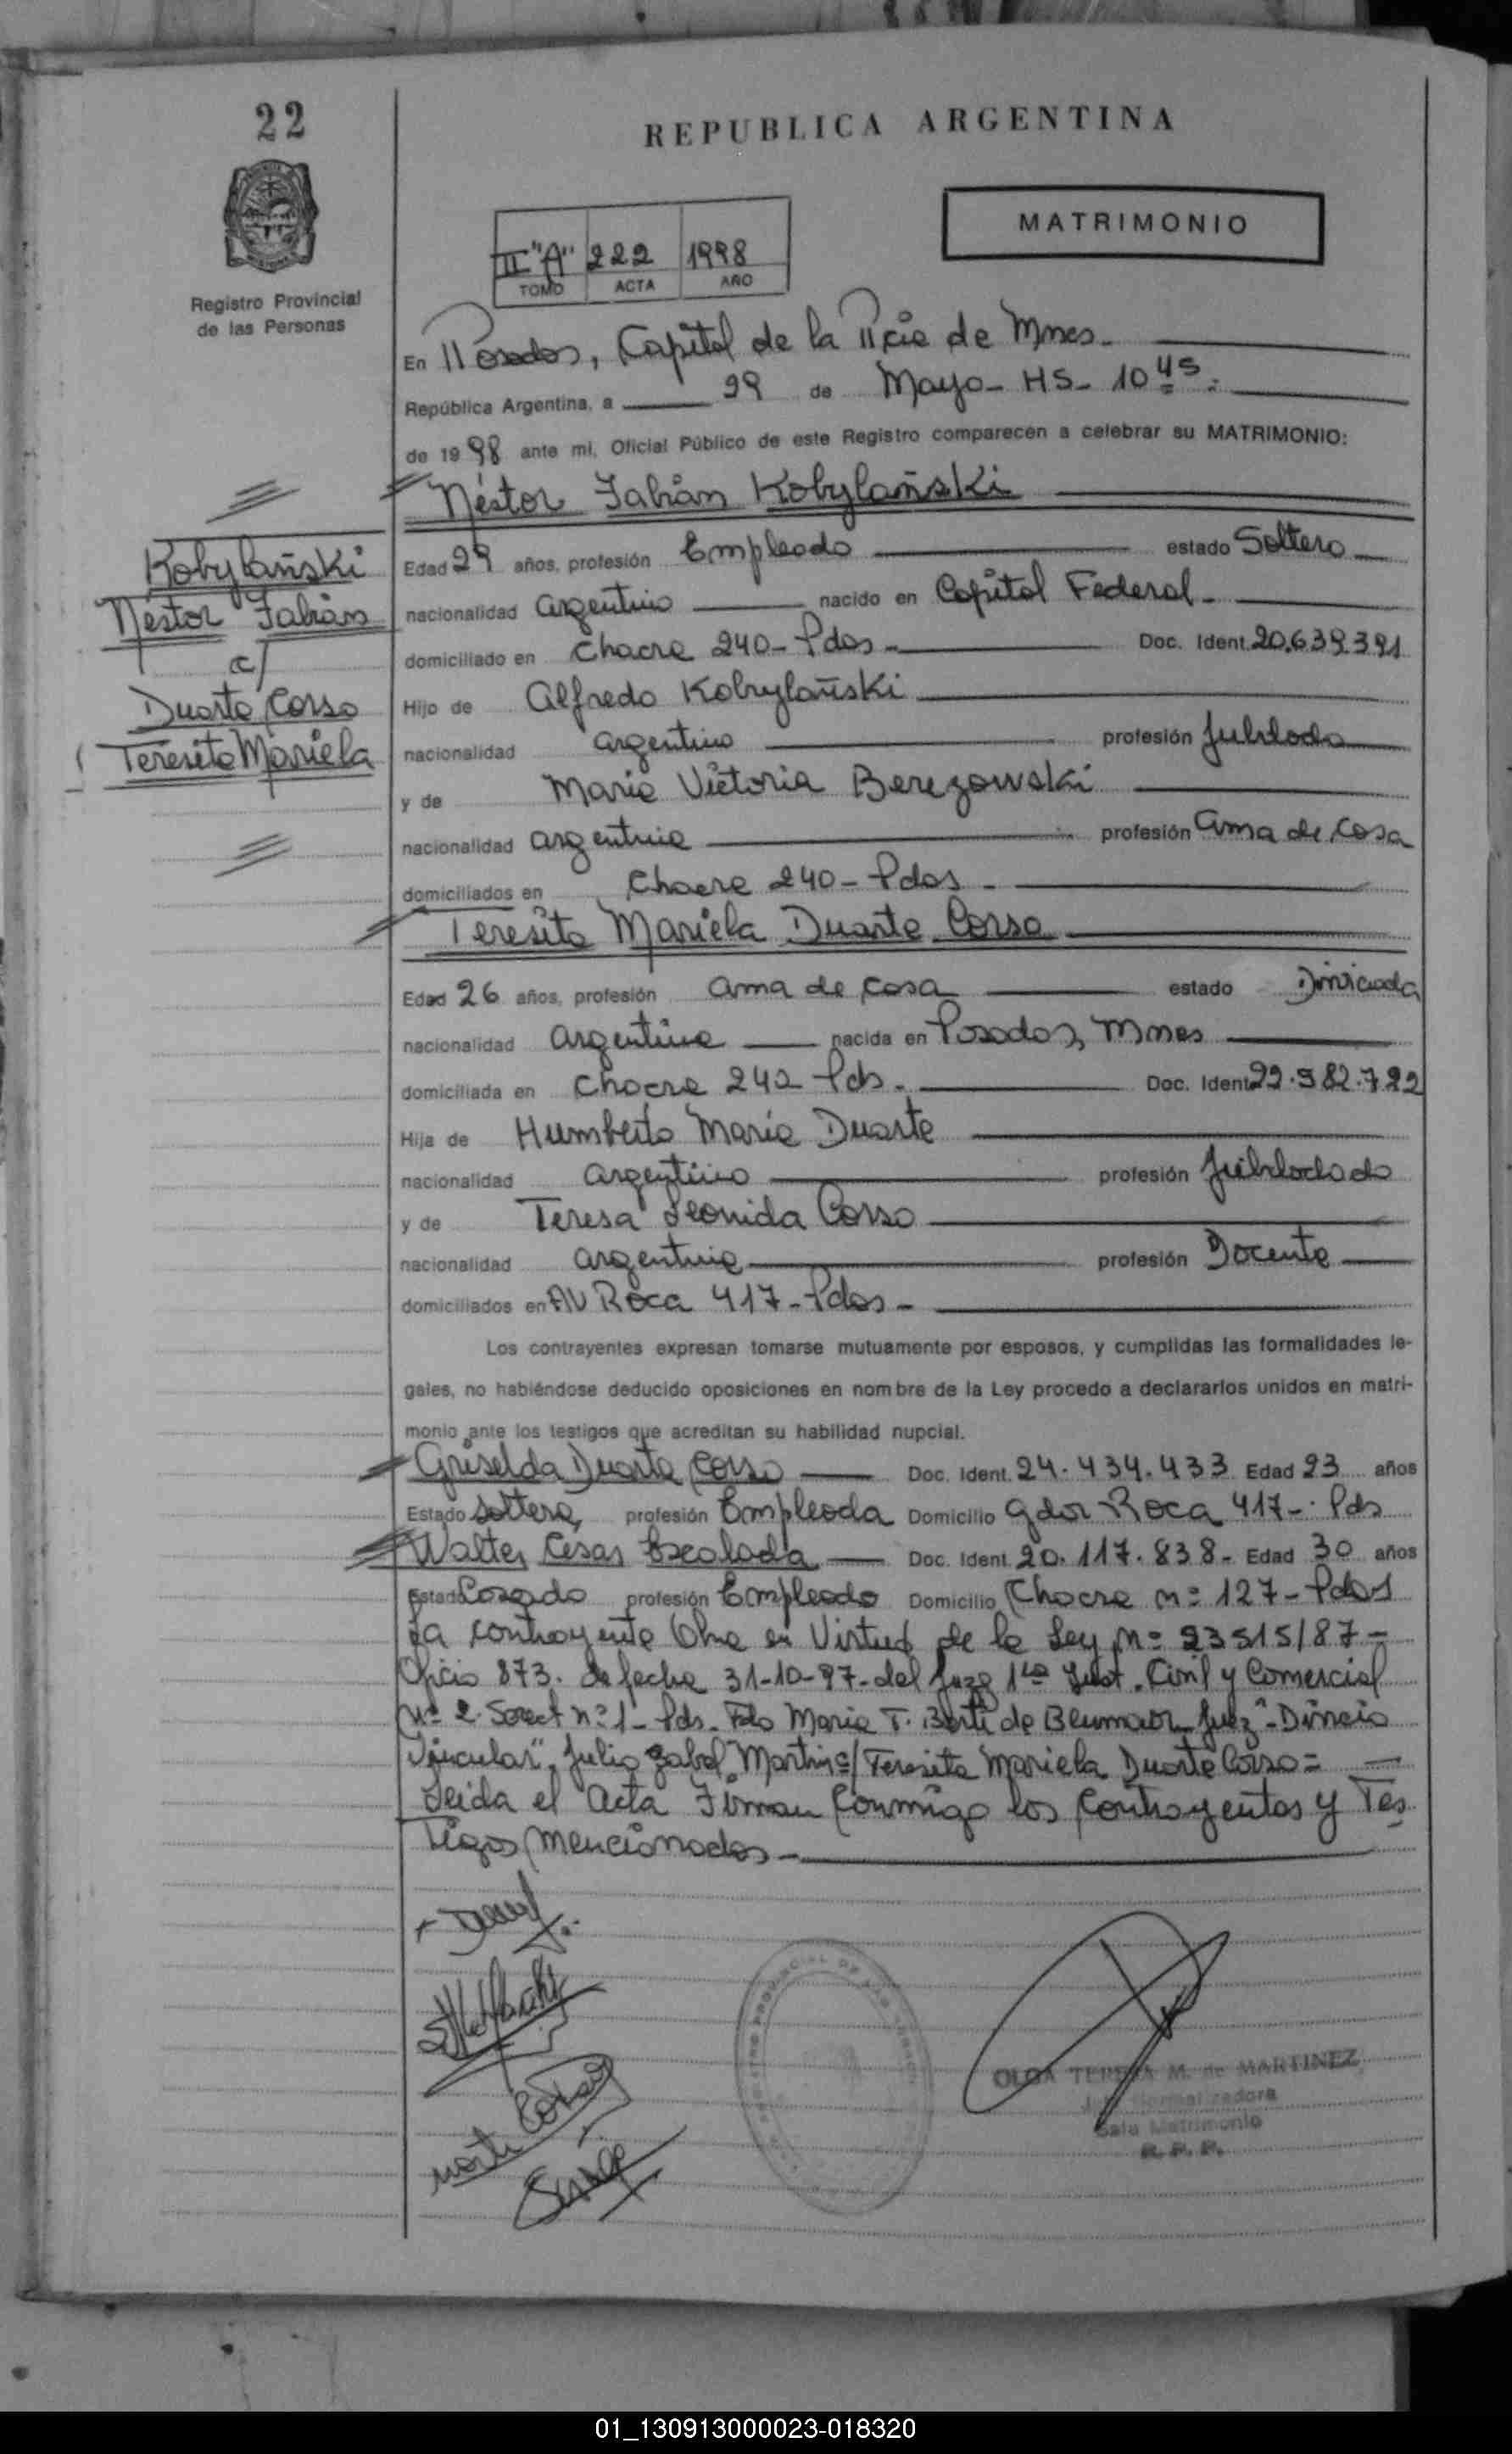 22
REPUBLICA ARGENTINA
MATRIMONIO
II "A" 222 1998
TOMO ACTA AÑO
Registro Provincial
de las Personas
En Posadas, Capital de la Pcia de Mnes.
República Argentina, a 29 de Mayo - HS - 10 45
de 1998 ante mi, Oficial Público de este Registro comparecen a celebrar su MATRIMONIO:
Néstor Fabián Kobylañski
Kobylañski
Néstor Fabián
c/
Duarte Corso
Teresita Mariela
Edad 29 años, profesión Empleado estado Soltero
nacionalidad argentino nacido en Capital Federal
domiciliado en Chacra 240 - Pdas - Doc. Ident. 20.639.391
Hijo de Alfredo Kobylañski
nacionalidad argentino profesión
y de Maria Victoria Berezowski
nacionalidad argentina profesión ama de casa
domiciliados en Chacra 240 - Pdas -
Teresita Mariela Duarte Corso
Edad 26 años, profesión ama de casa estado Divorciada
nacionalidad argentina nacida en Posadas, Mnes
domiciliada en Chacra 242 Pds. Doc. Ident. 22.982.722
Hija de Humberto Maria Duarte
nacionalidad argentino profesión
y de Teresa Leonida Corso
nacionalidad argentina profesión Docente
domiciliados en AV Roca 417 - Pdas -
Los contrayentes expresan tomarse mutuamente por esposos, y cumplidas las formalidades le-
gales, no habiéndose deducido oposiciones en nombre de la Ley procedo a declararlos unidos en matri-
monio ante los testigos que acreditan su habilidad nupcial.
Griselda Duarte Corso Doc. Ident. 24.434.433 Edad 23 años
Estado Soltera, profesión Empleada Domicilio Gdor Roca 417 - Pds
Walter Cesar Escalada Doc. Ident. 20.117.838 - Edad 30 años
Estado Casado profesión Empleado Domicilio Chacra nº 127 - Pdas
La contrayente Obra en Virtud de la Ley nº 23515/87 -
Oficio 873. de fecha 31-10-97 - del Juzg 1ra Inst. Civil y Comercial
Nº 2. Secret nº 1 - Pds - Fdo Maria T. Berti de juez - Divorcio
Vincular", Julio Martin c/ Teresita Mariela Duarte Corso =
Leida el acta Firman Conmigo los Contrayentes y Tes
Tigos Mencionados -
OLGA TERESA M. de MARTINEZ
Sala Matrimonio
R. P. P.
01_130913000023-018320